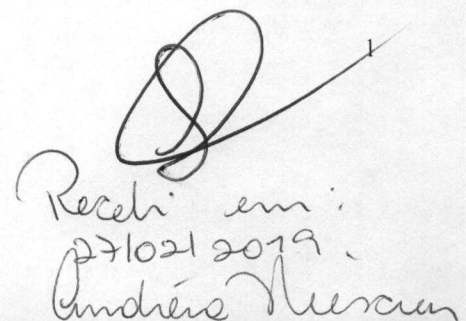 1
Recebi em:
27/02/2019.
Andréia